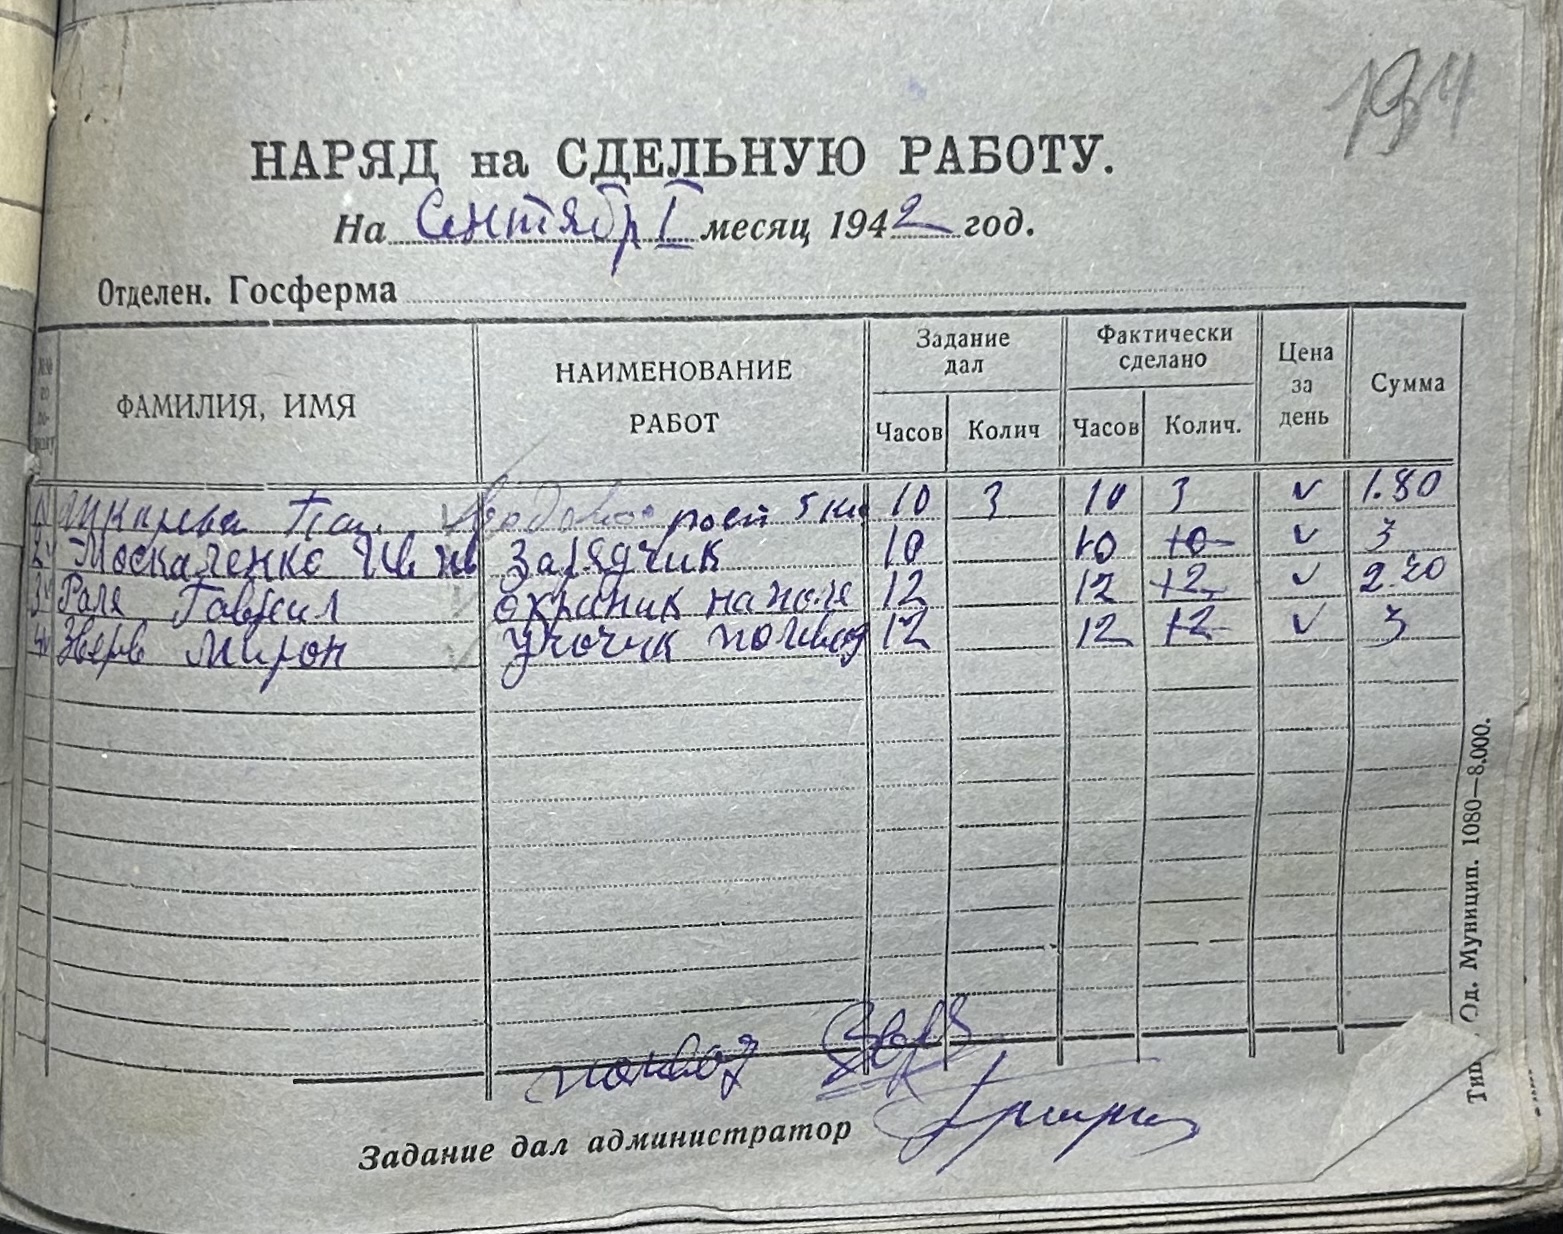 194
НАРЯД на СДЕЛЬНУЮ РАБОТУ.
На Сентябр I месяц 1942 год.
Отделен. Госферма
ФАМИЛИЯ, ИМЯ НАИМЕНОВАНИЕ РАБОТ Задание дал Часов Колич Фактически сделано Часов Колич. Цена за день Сумма
рост 5 10 3 10 3 1.80
Москаленко Ив зарядчик 10 10 10 3
3 Раля Гаврил охраник на поле 12 12 12 2.20
4 Зверв Мирон учочик 12 12 12 3
Задание дал администратор
Од. Муницип. 1080—8.000.